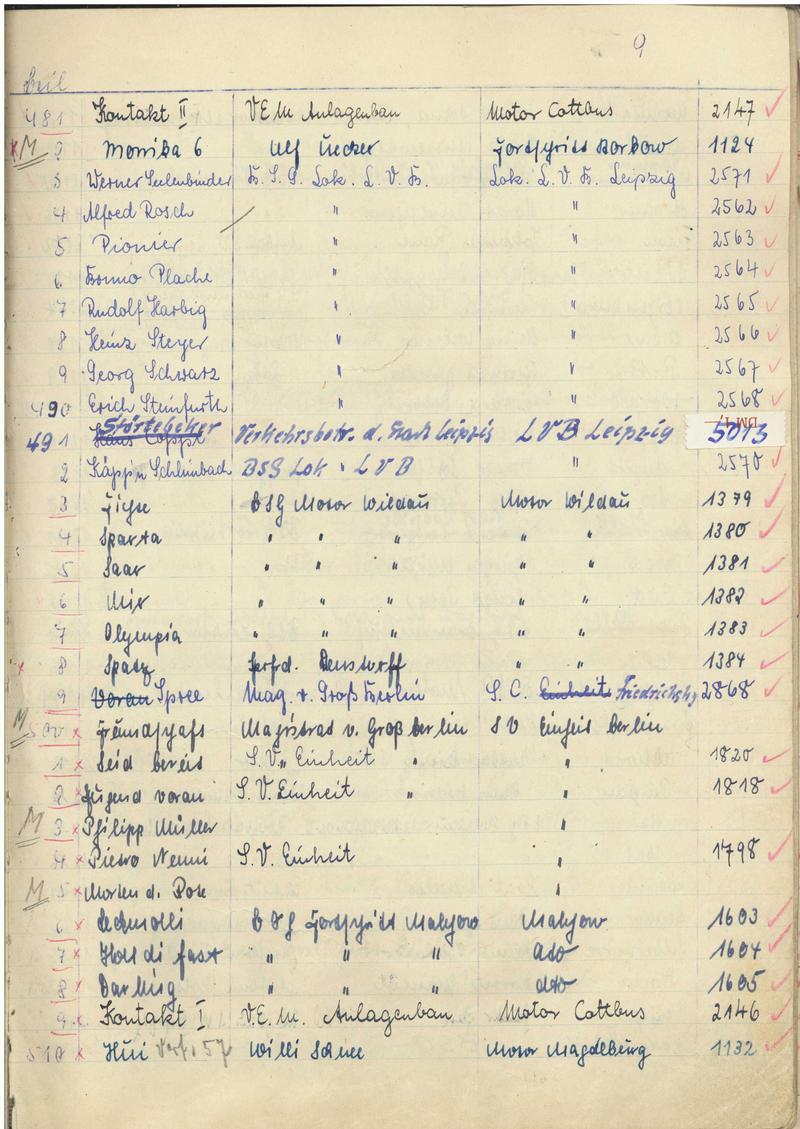 9
481 Kontakt II V.E.M. Anlagenbau Motor Cottbus 2147
M 2 Monika 6 Ulf Ücker Fortschritt Borkow 1124
3 Werner Seelenbinder B.S.G. Lok. L.V.B. Lok. L.V.B. Leipzig 2571
4 Alfred Rosch " " 2562
5 Pionier " " 2563
6 Bruno Plache " " 2564
7 Rudolf Harbig " " 2565
8 Heinz Steyer " " 2566
9 Georg Schwarz " " 2567
490 Erich Steinfurth " " 2568
Störtebeker
491 Hans Coppi Verkehrsbetr. d. Stadt Leipzig LVB Leipzig 5013
2 Käpp'n Schlimbach BSG Lok. LVB " 2570
3 BSG Motor Wildau Motor Wildau 1379
4 Sparta " " " " " 1380
5 Saar " " " " " 1381
6 Nix " " " " " 1382
7 Olympia " " " " " 1383
8 Spatz Ferd. " " 1384
9 Voran Spree Mag. v. Groß Berlin S.C. Einheit Friedrichshg 2868
M 500 Freundschaft Magistrat v. Groß berlin SV Einheit berlin
1 Seid bereit S.V. Einheit " " 1820
2 Jugend voran S.V. Einheit " " 1818
M 3 Philipp Müller "
4 Pietro Nenni S.V. Einheit " 1798
M 5 Morten d. Rote "
6 BSG Fortschritt Malchow Malchow 1603
7 Holl di fast " " " dto 1604
8 Darling " " " dto 1605
9 Kontakt I V.E.M. Anlagenbau Motor Cottbus 2146
510 Hui Verf. 57 Willi Schnee Motor Magdeburg 1132